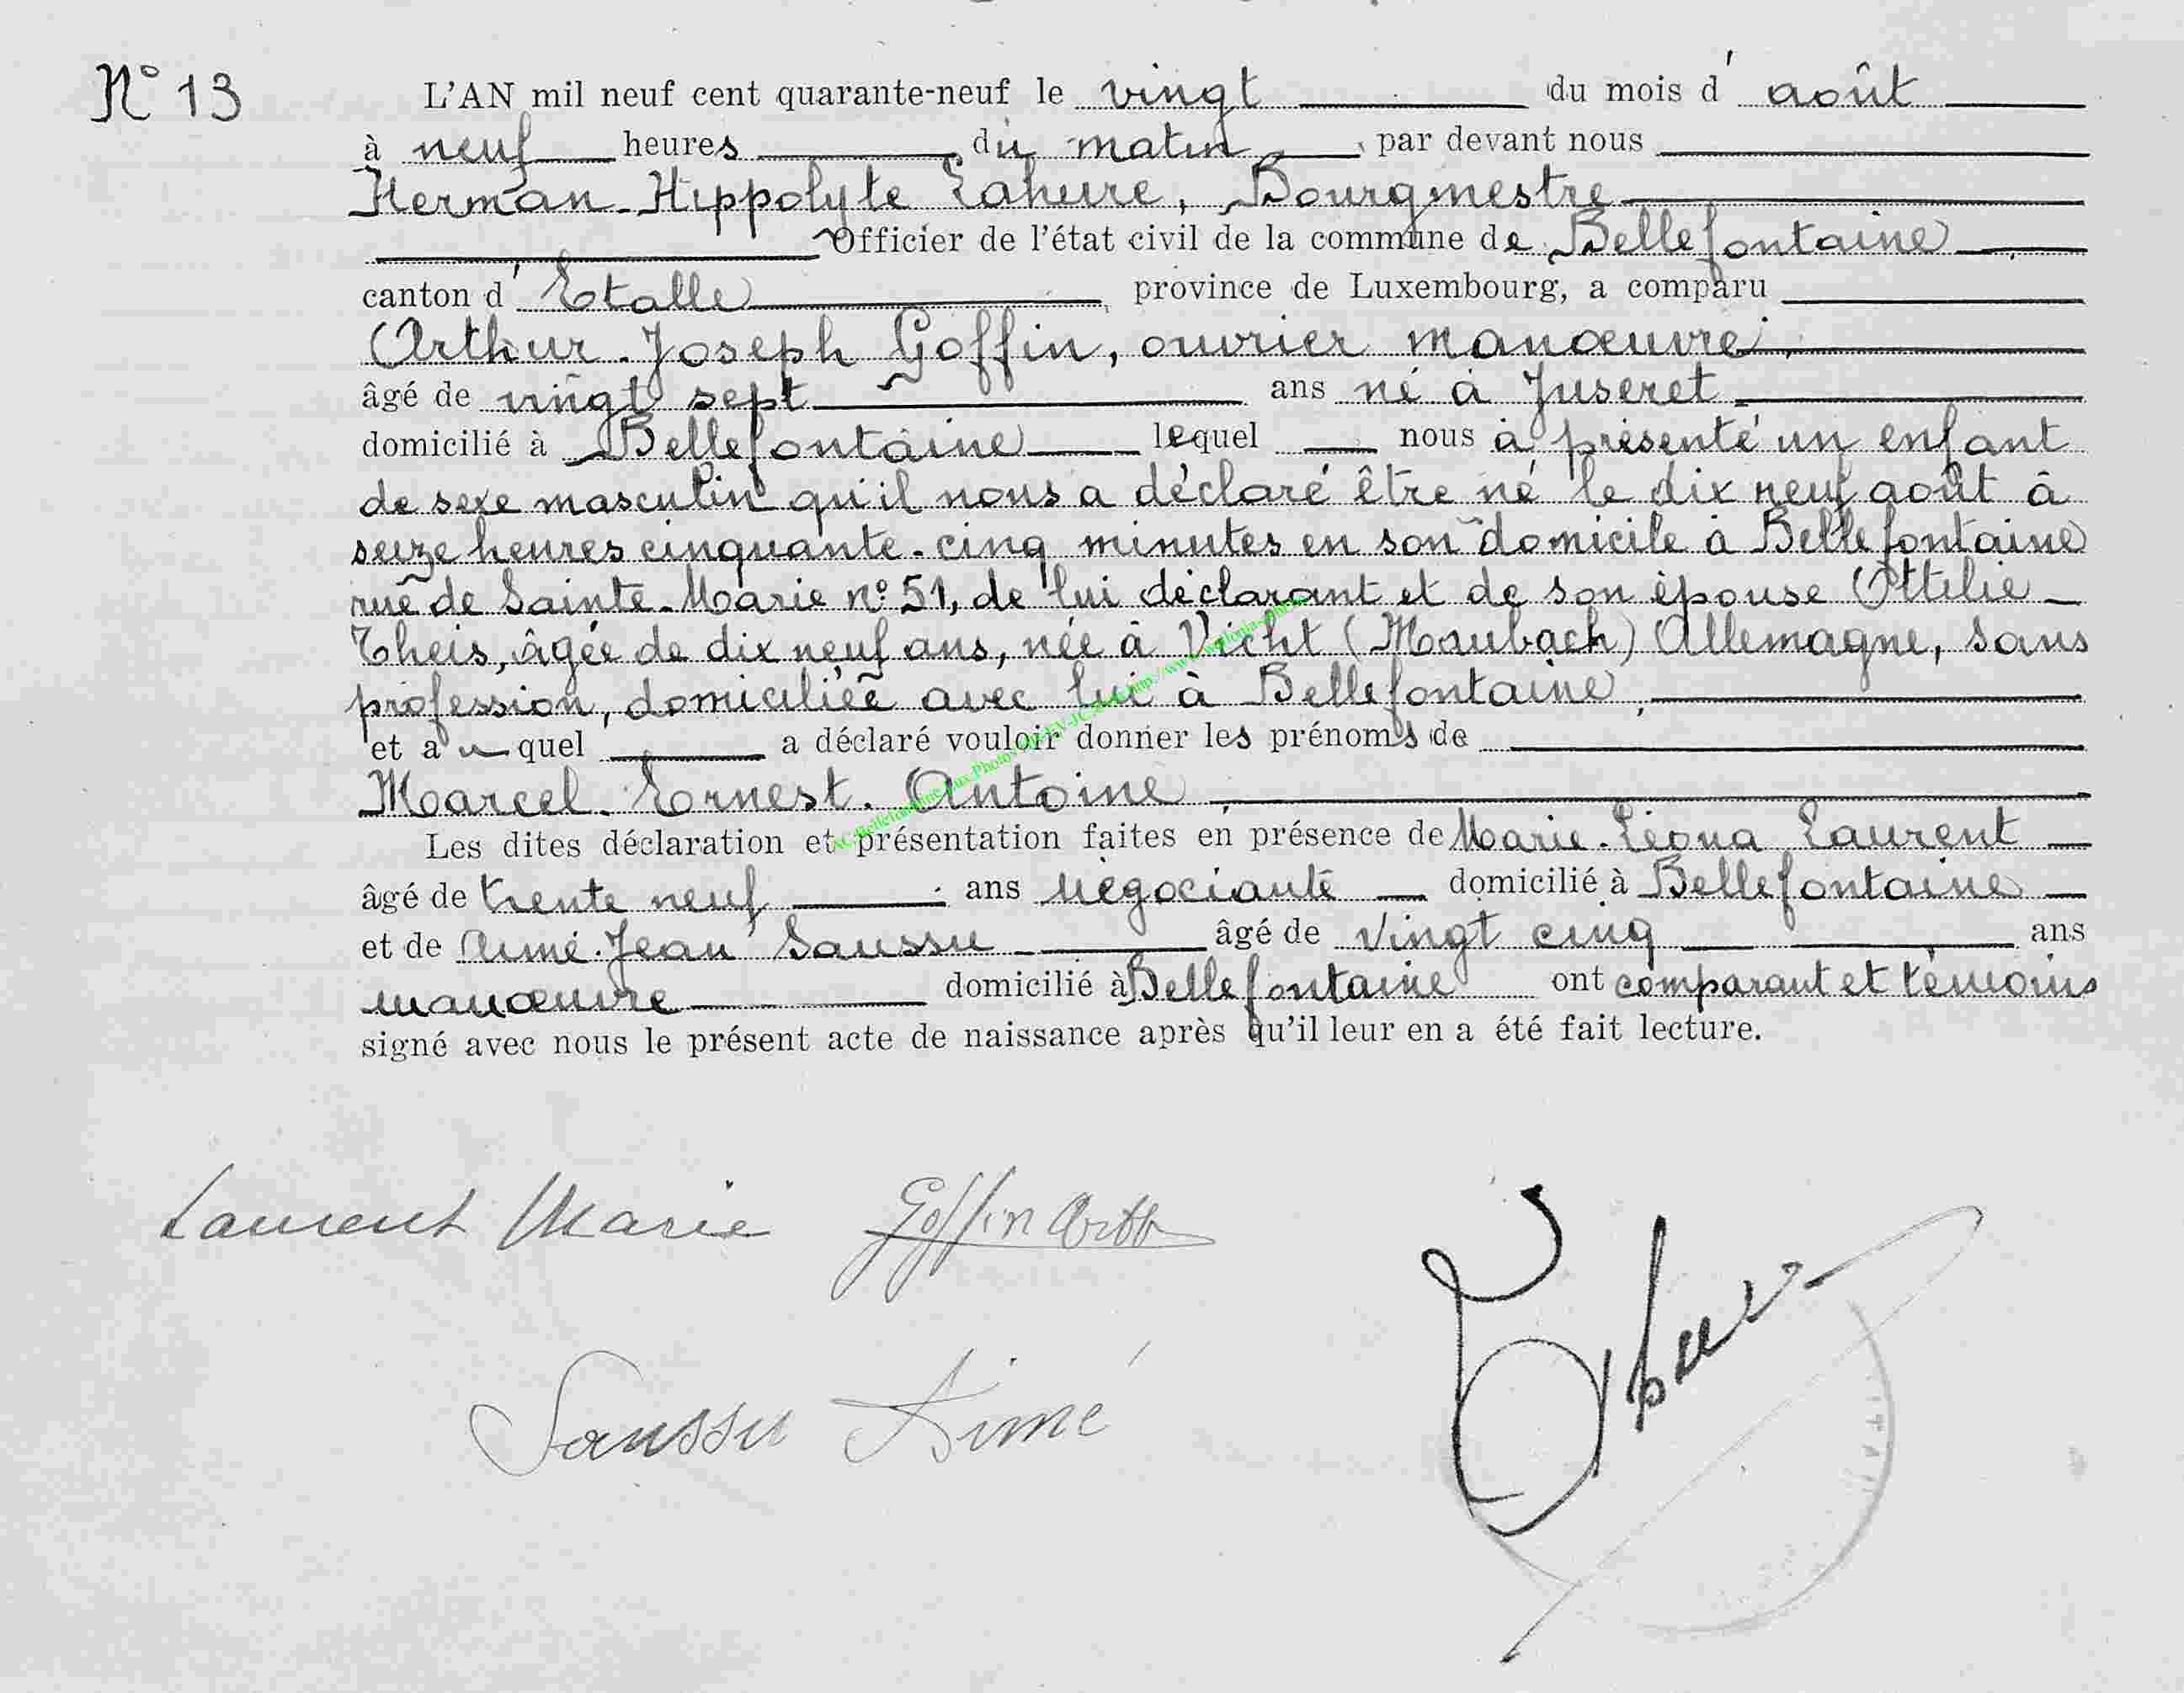 N° 13
L'AN mil neuf cent quarante-neuf le vingt du mois d' août
à neuf heures du matin par devant nous
Herman-Hippolyte Lahure, Bourgmestre
Officier de l'état civil de la commune de Bellefontaine
canton d' Etalle province de Luxembourg, a comparu
Arthur-Joseph Goffin, ouvrier manœuvre,
âgé de vingt sept ans né à Juseret
domicilié à Bellefontaine lequel nous a présenté un enfant
de sexe masculin qu'il nous a déclaré être né le dix neuf août à
seize heures cinquante-cinq minutes en son domicile à Bellefontaine
rue de Sainte-Marie n° 51, de lui déclarant et de son épouse Ottilie
Theis, âgée de dix neuf ans, née à Vicht (Maubach) Allemagne, sans
profession, domiciliée avec lui à Bellefontaine,
et a u quel a déclaré vouloir donner les prénoms de
Marcel. Ernest. Antoine,
Les dites déclaration et présentation faites en présence de Marie-Léona Laurent
âgé de trente neuf ans négociante domicilié à Bellefontaine
et de Aimé-Jean Saussu âgé de vingt cinq ans
manœuvre domicilié à Bellefontaine ont comparant et témoins
signé avec nous le présent acte de naissance après qu'il leur en a été fait lecture.
Laurent Marie Goffin Arth
Saussu Aimé